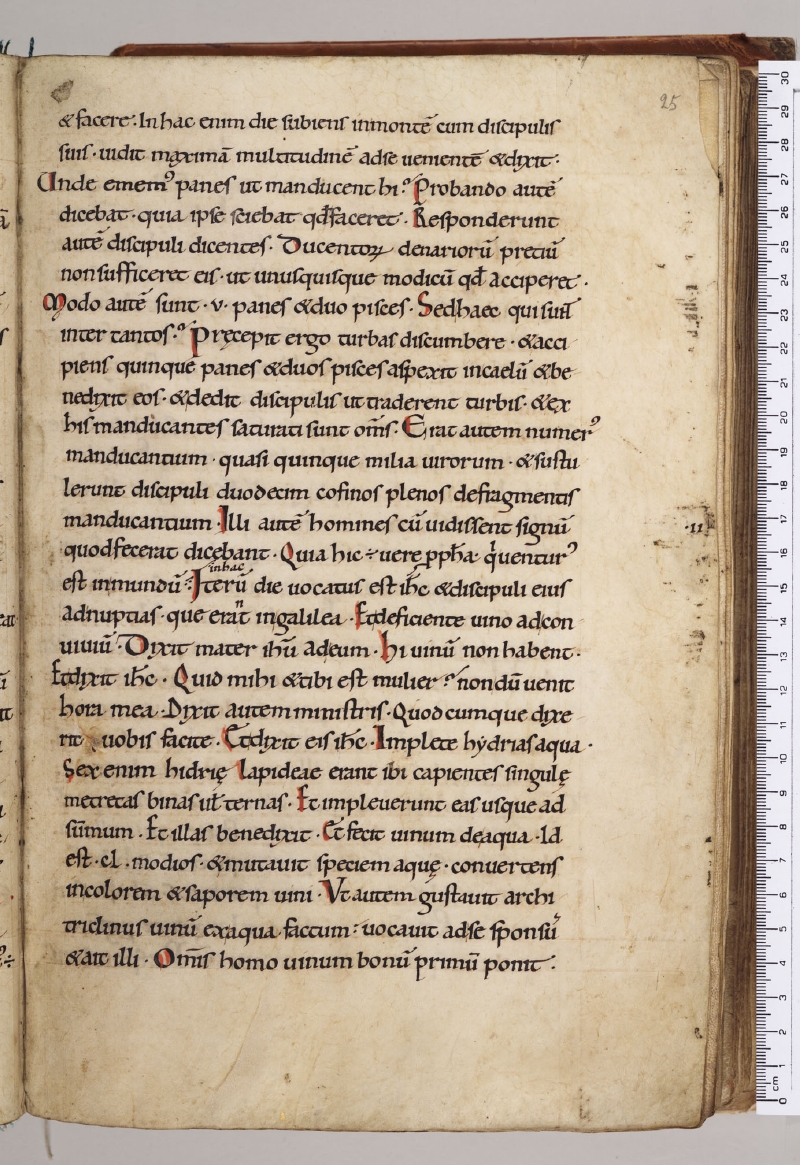 25
& facere. In hac enim die subiens inmontē cum discipulis
suis. uidit maximā multitudinē adse uenientē &dixit:
Unde ememꝰ panes ut manducent hi? Probando autē
dicebat. quia ipse sciebat qđ faceret. Responderunt
autē discipuli dicentes. Ducentoꝝ denariorū preciū
non sufficeret eis. ut unusquisque modicū qđ acciperet.
Modo autē sunt. v. panes &duo pisces. Sed haec qui sun̄t
inter tantos? Pręcepit ergo turbas discumbere. &acci
piens quinque panes &duos pisces aspexit incaelū &be
nedixit eos. &dedit discipulis ut traderent turbis. &ex
his manducantes saturati sunt om̄s. Erat autem numerꝰ
manducantium. quasi quinque milia uirorum. &sustu
lerunt discipuli duodecim cofinos plenos defragmentis
manducantium. Illi autē homines cū uidissent signū
.II
quodfecerat dicebant. Quia hic ÷ uere ꝓph̄a. q uenturꝰ
est inmundū. Iterū in hac die uocatus est ih̄c &discipuli eius
adnuptias. que erānt ingalilea. Et deficiente uino adcon
uiuiū. Dixit mater ih̄u adeum. Hi uinū non habent.
Et dixit ih̄c. Quid mihi &tibi est mulier? nondū uenit
hora mea. Dixit autem ministris. Quodcumque dixe
rit uobis facite. Et dixit eis ih̄c. Implete hydrias aqua.
Sex enim hidrię lapideae erant ibi capientes singulę
metretas binas ut̄ ternas. Et impleuerunt eas usque ad
sūmum. Et illas benedixit. Et fecit uinum deaqua. Id
est. cl. modios. &mutauit speciem aquę. conuertens
incolorem &saporem uini. Vt autem gustauit archi
triclinus uinū exaqua factum: uocauit adse sponsū
&ait illi. Om̄is homo uinum bonū primū ponit: